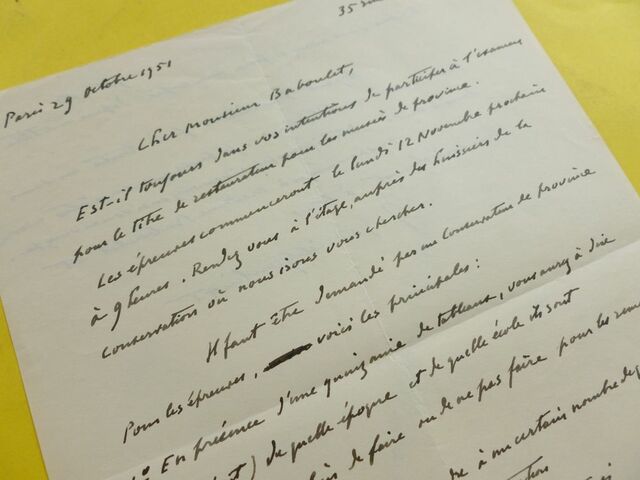 35
Paris 29 octobre 1951
Cher Monsieur Baboulet,
Est-il toujours dans vos intentions de participer à l'examen
pour le titre de restaurateur pour les musées de province.
Les épreuves commenceront le lundi 12 Novembre prochain
à 9 heures. Rendez vous à l'étage, auprès des huissiers de la
conservation où nous irons vous chercher.
Il faut être demandé par un conservateur de province
Pour les épreuves, voici les principales :
1° En présence d'une quinzaine de tableaux, vous aurez à dire
de quelle époque et de quelle école ils sont
de faire ou de ne pas faire pour les
à un certain nombre de